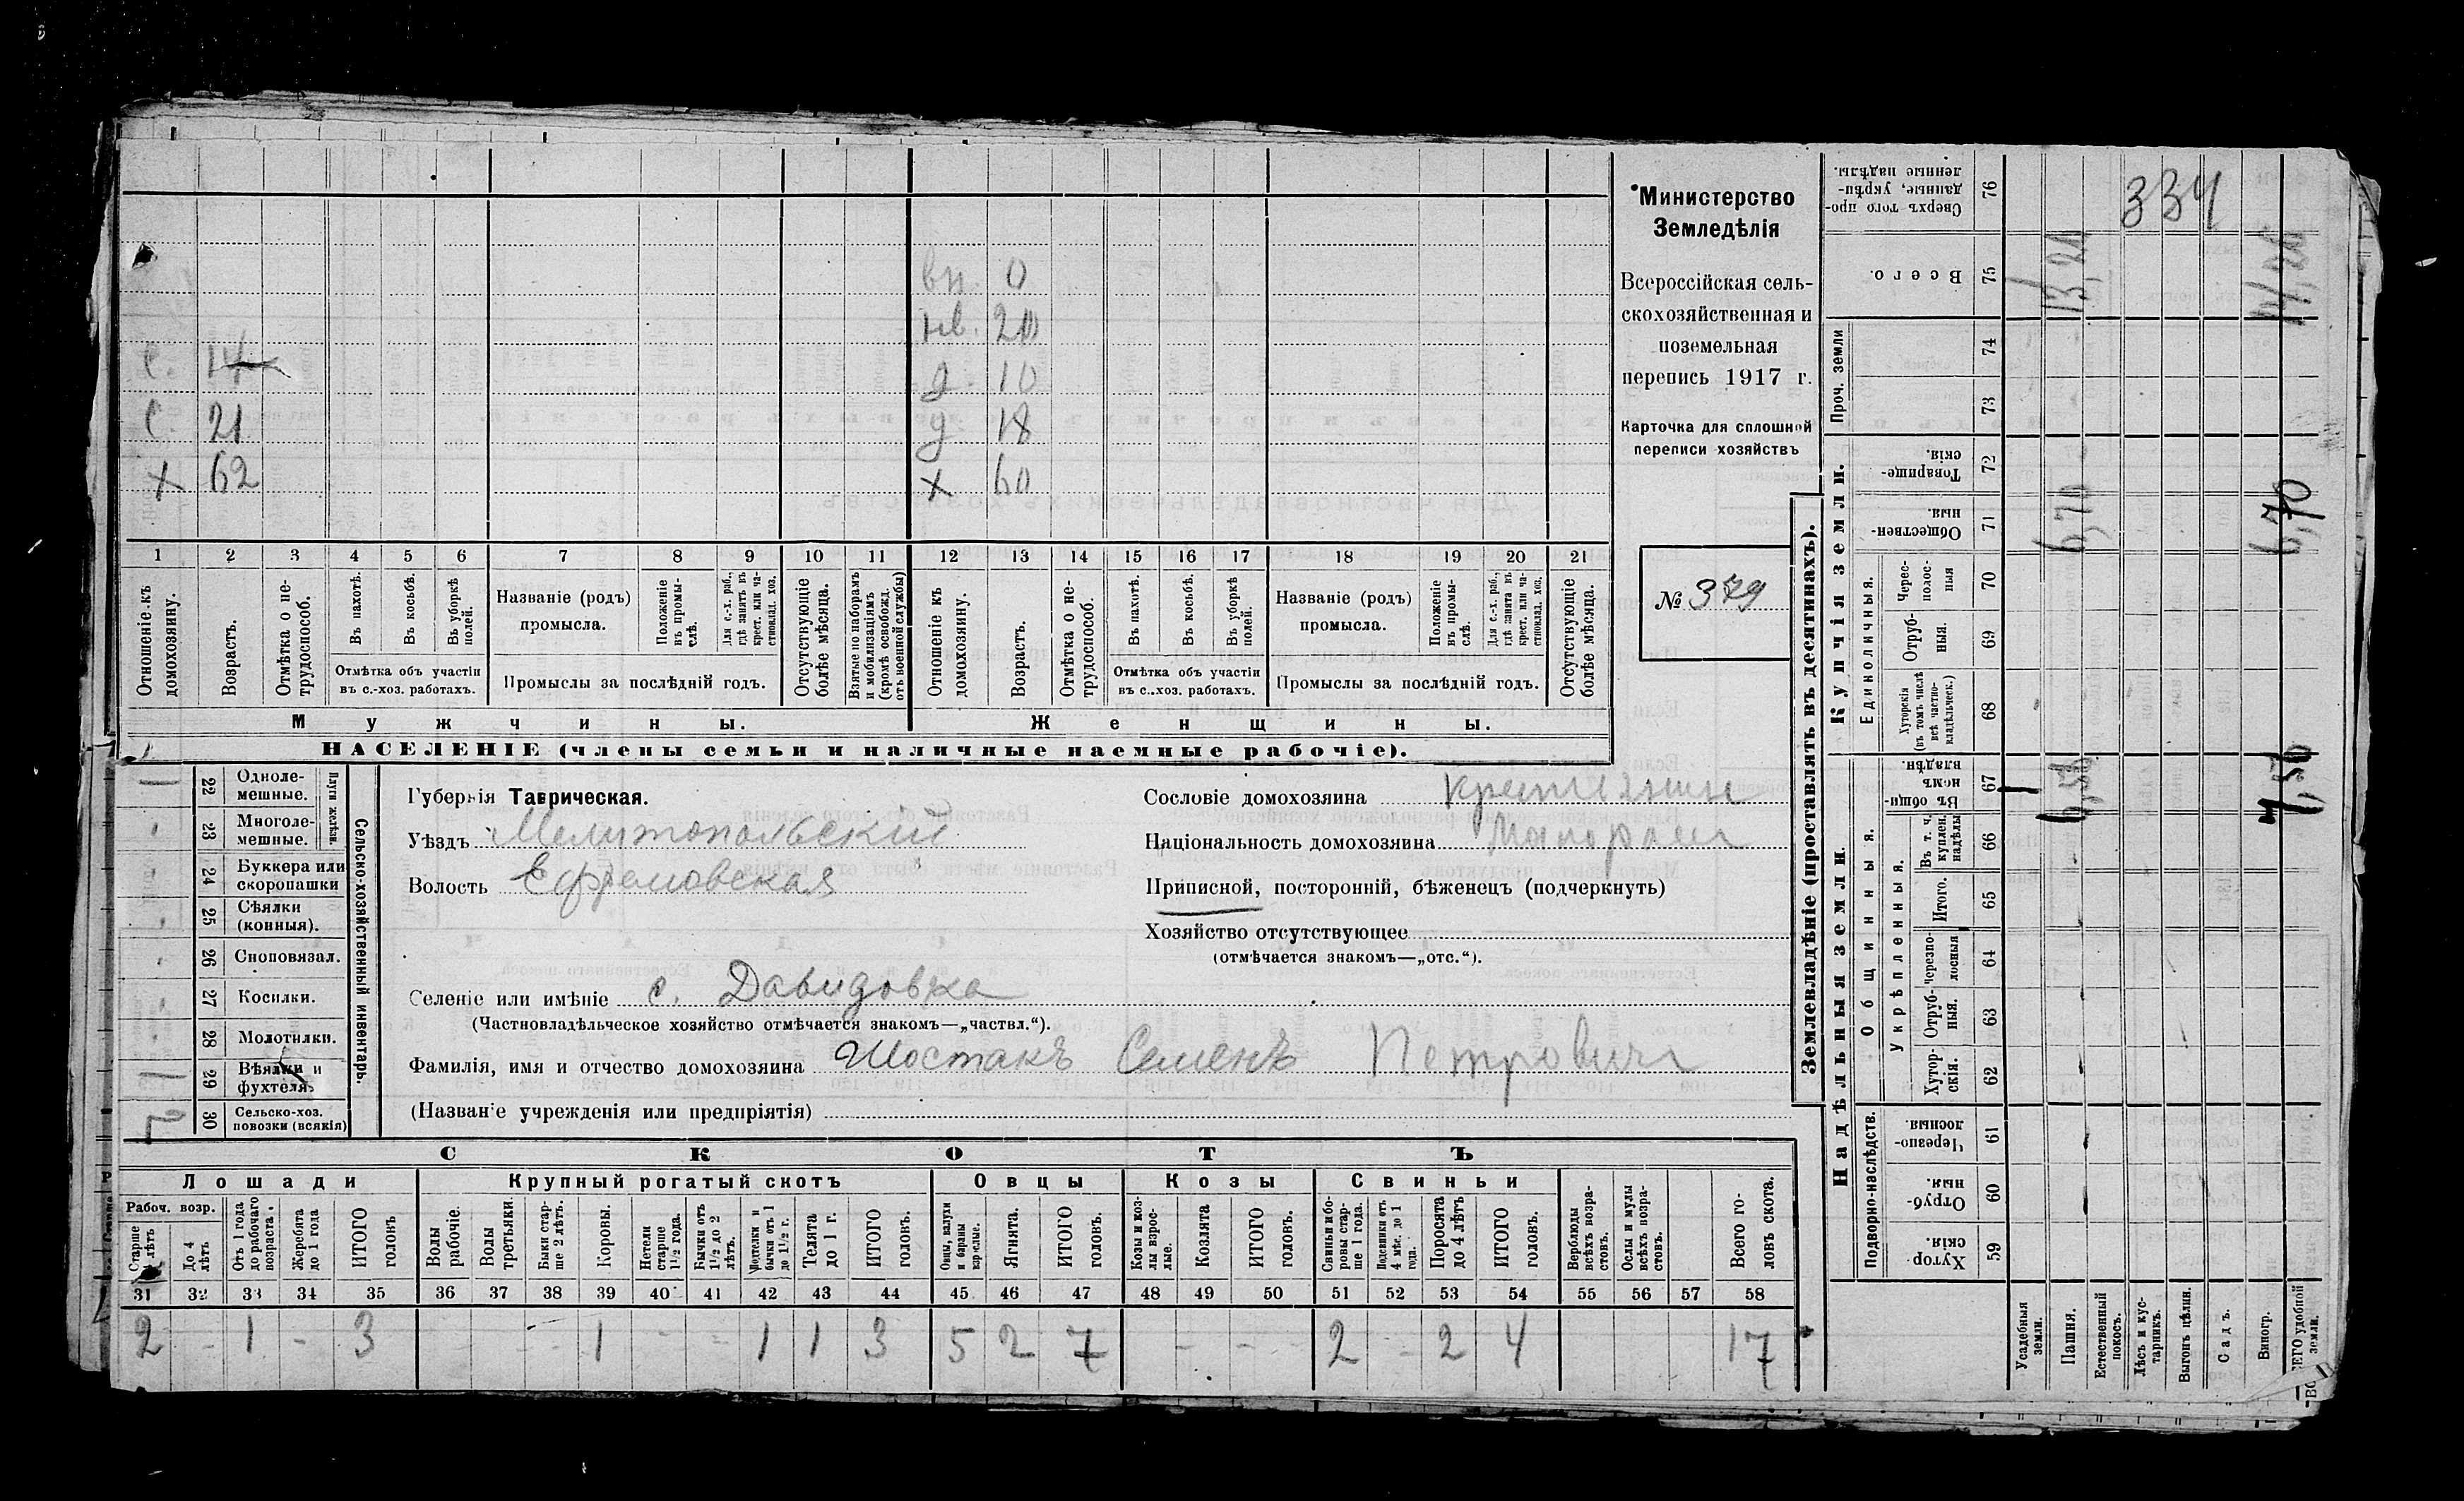 334
Министерство
Земледѣлія
Всероссійская сель-
скохозяйственная и
поземельная
перепись 1917 г.
Карточка для сплошной
переписи хозяйствъ
№ 379
вн. 0
нв. 20
с. 14 д. 10
с. 21 д 18
х 62 х 60
1 2 3 4 5 6 7 8 9 10 11 12 13 14 15 16 17 18 19 20 21
Отношеніе къ домохозяину.
Возрастъ.
Отмѣтка о не-трудоспособ.
Въ пахотѣ.
Въ косьбѣ.
Въ уборкѣ полей.
Отмѣтка объ участіи
въ с.-хоз. работахъ.
Названіе (родъ)
промысла.
Положеніе въ промы-слѣ.
Для с.-х. раб., гдѣ занятъ въ крест. или ча-стновлад. хоз.
Промыслы за послѣдній годъ.
Отсутствующіе болѣе мѣсяца.
Взятые по наборамъ и мобилизаціямъ (кромѣ освобожд. отъ военной службы)
Отношеніе къ домохозяину.
Возрастъ.
Отмѣтка о не-трудоспособ.
Въ пахотѣ.
Въ косьбѣ.
Въ уборкѣ полей.
Отмѣтка объ участіи
въ с.-хоз. работахъ.
Названіе (родъ)
промысла.
Положеніе въ промы-слѣ.
Для с.-х. раб., гдѣ занята въ крест. или ча-стновлад. хоз.
Промыслы за послѣдній годъ.
Отсутствующіе болѣе мѣсяца.
Мужчины. Женщины.
НАСЕЛЕНІЕ (члены семьи и наличные наемные рабочіе).
Сельско-хозяйственный инвентарь.
Плуги желѣзн.
1 22 Одноле-
мешные.
23 Многоле-
мешные.
24 Буккера или
скоропашки
25 Сѣялки
(конныя).
26 Сноповязал.
27 Косилки.
28 Молотилки.
1 29 Вѣялки и
фухтеля.
2 30 Сельско-хоз.
повозки (всякія)
Губернія Таврическая.
Уѣздъ Мелитопольскій
Волость Ефремовская
Селеніе или имѣніе с. Давидовка
(Частновладѣльческое хозяйство отмѣчается знакомъ—„частвл.“).
Фамилія, имя и отчество домохозяина Шостакъ Семенъ Петрович
(Названіе учрежденія или предпріятія)
Сословіе домохозяина крестьянин
Національность домохозяина Малоросс
Приписной, посторонній, бѣженецъ (подчеркнуть)
Хозяйство отсутствующее
(отмѣчается знакомъ—„отс.“).
СКОТЪ
Лошади Крупный рогатый скотъ Овцы Козы Свиньи
Рабоч. возр.
Старше 4 лѣтъ
До 4 лѣтъ
Отъ 1 года до рабочаго возраста.
Жеребята до 1 года
ИТОГО головъ
Волы рабочіе.
Волы третьяки.
Быки стар-ше 2 лѣтъ.
Коровы.
Нетели старше 1½ года.
Бычки отъ 1½ до 2 лѣтъ.
Подтелки и бычки отъ 1 до 1½ г.
Телята до 1 г.
ИТОГО головъ.
Овцы, валухи и бараны взрослые.
Ягнята.
ИТОГО головъ.
Козы и коз-лы взрос-лые.
Козлята
ИТОГО головъ.
Свиньи и бо-ровы стар-ше 1 года.
Подсвинки отъ 4 мѣс. до 1 года.
Поросята до 4 лѣтъ
ИТОГО головъ.
Верблюды всѣхъ возра-стовъ.
Ослы и мулы всѣхъ возра-стовъ.
Всего го-ловъ скота.
31 32 33 34 35 36 37 38 39 40 41 42 43 44 45 46 47 48 49 50 51 52 53 54 55 56 57 58
2 - 1 - 3 - 1 - - 1 1 3 5 2 7 - - - 2 - 2 4 17
Землевладѣніе (проставлять въ десятинахъ).
Купчія земли.
Надѣльныя земли.
Сверхъ того про-данные, укрѣп-ленные надѣлы. 76
Всего. 75 13,20
Проч. земли 74
73
Товарище-скія. 72
Обществен-ныя. 71 6,70 6,70
Единоличныя.
Черес-полос-ныя 70
Отруб-ныя. 69
Хуторскія (въ томъ числѣ всѣ частно-владѣльческ.) 68
Общинныя.
Въ общи-номъ владѣн. 67 1 6,50 7,50
Укрѣпленныя.
Въ т. ч. куплен. надѣлы 66
Итого. 65
Черезпо-лосныя 64
Отруб-ныя. 63
Хутор-скія. 62
Подворно-наслѣдств.
Черезпо-лосныя 61
Отруб-ныя. 60
Хутор-скія. 59
Усадебныя земли.
Пашня.
Естественный покосъ.
Лѣсъ и кус-тарникъ.
Выгонъ цѣлин.
Садъ.
Виногр.
ВСЕГО удобной земли.